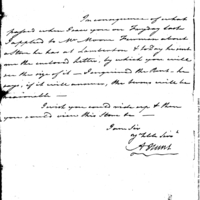 In consequence of what
passed when I saw you on Fryday last
I applied to Mr. Moore Furman about
a Store he has at Lamberton & to day he sent
me the inclosed Letter, by which you will
see the size of it — I enquired the Rent, he
says, if it will answer, the terms will be
reasonable —
I wish you could ride up & then
you could view this Store &c —
I am Sir
Hunt